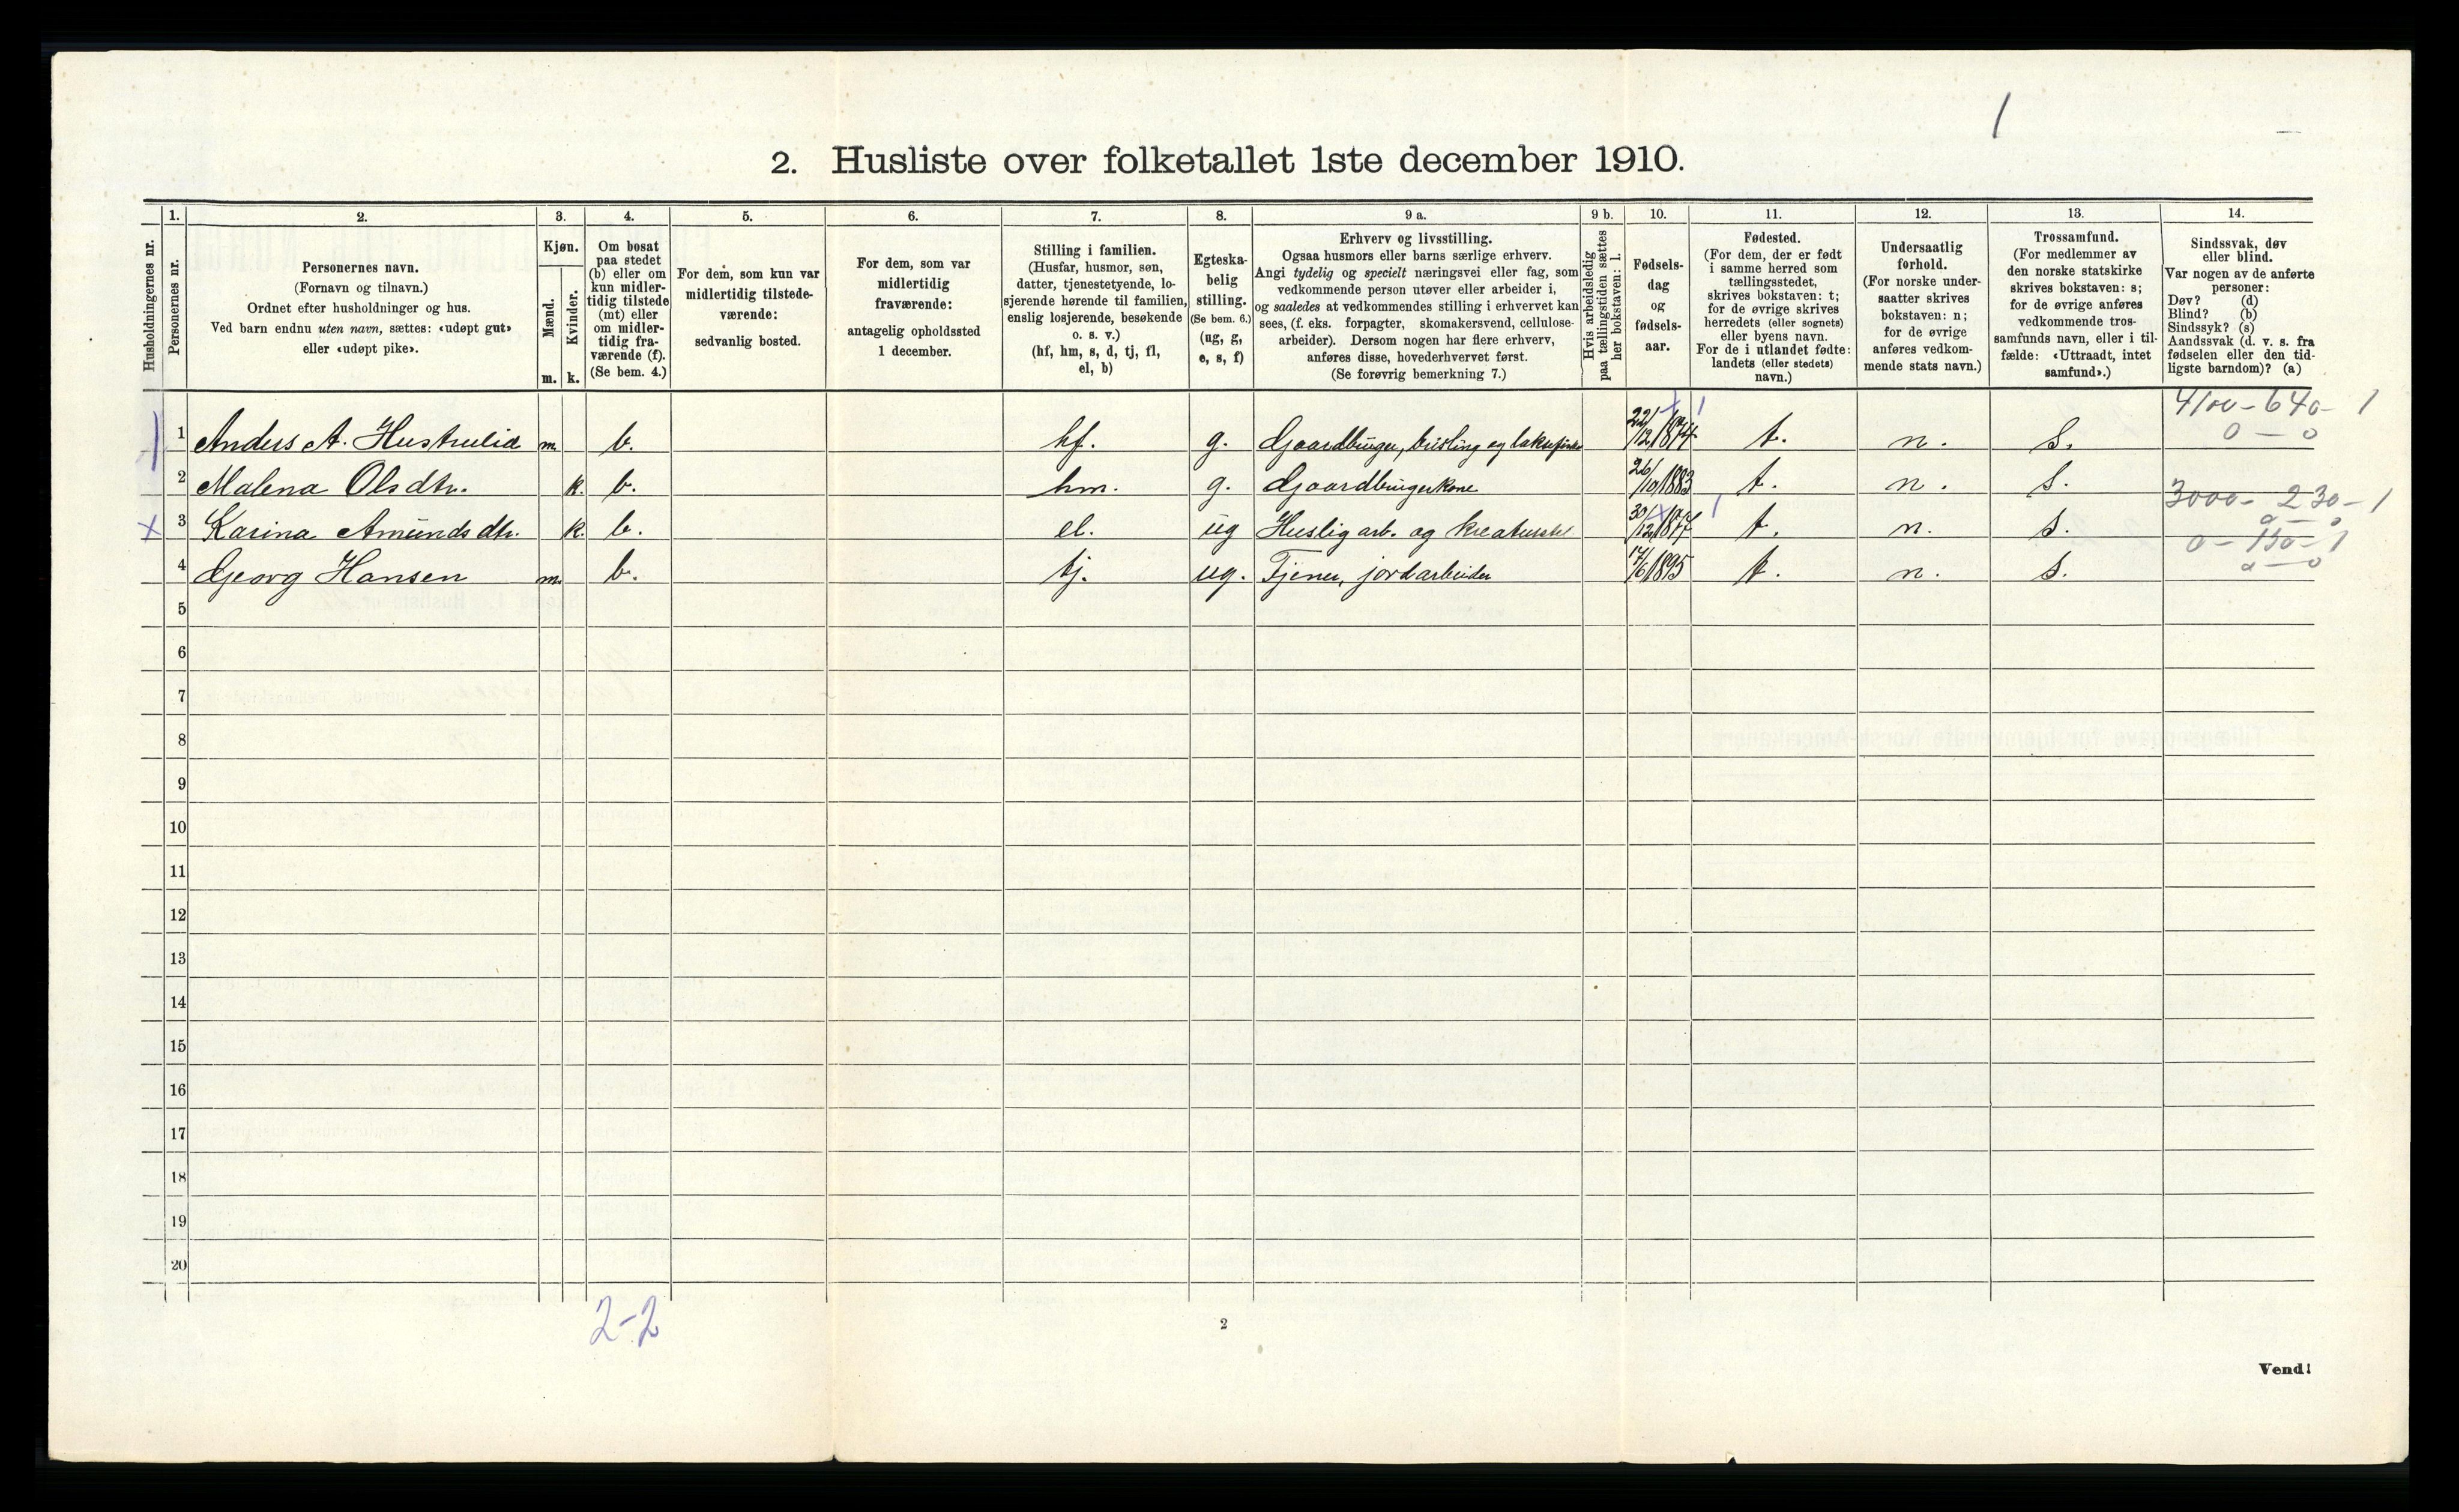 2. Husliste over folketallet 1ste december 1910.
1
Husholdningernes nr.
1.
Personernes nr.
2.
Personernes navn.
(Fornavn og tilnavn.)
Ordnet efter husholdninger og hus.
Ved barn endnu uten navn, sættes: «udøpt gut»
eller «udøpt pike».
3.
Kjøn.
Mænd.
m.
Kvinder.
k.
4.
Om bosat
paa stedet
(b) eller om
kun midler-
tidig tilstede
(mt) eller
om midler-
tidig fra-
værende (f).
(Se bem. 4.)
5.
For dem, som kun var
midlertidig tilstede-
værende:
sedvanlig bosted.
6.
For dem, som var
midlertidig
fraværende:
antagelig opholdssted
1 december.
7.
Stilling i familien.
(Husfar, husmor, søn,
datter, tjenestetyende, lo-
sjerende hørende til familien,
enslig losjerende, besøkende
o. s. v.)
(hf, hm, s, d, tj, fl,
el, b)
8.
Egteska-
belig
stilling.
(Se bem. 6.)
(ug, g,
e, s, f)
9 a.
Erhverv og livsstilling.
Ogsaa husmors eller barns særlige erhverv.
Angi tydelig og specielt næringsvei eller fag, som
vedkommende person utøver eller arbeider i,
og saaledes at vedkommendes stilling i erhvervet kan
sees, (f. eks. forpagter, skomakersvend, cellulose-
arbeider). Dersom nogen har flere erhverv,
anføres disse, hovederhvervet først.
(Se forøvrig bemerkning 7.)
9 b.
Hvis arbeidsledig
paa tællingstiden sættes
her bokstaven: l.
10.
Fødsels-
dag
og
fødsels-
aar.
11.
Fødested.
(For dem, der er født
i samme herred som
tællingsstedet,
skrives bokstaven: t;
for de øvrige skrives
herredets (eller sognets)
eller byens navn.
For de i utlandet fødte:
landets (eller stedets)
navn.)
12.
Undersaatlig
forhold.
(For norske under-
saatter skrives
bokstaven: n;
for de øvrige
anføres vedkom-
mende stats navn.)
13.
Trossamfund.
(For medlemmer av
den norske statskirke
skrives bokstaven: s;
for de øvrige anføres
vedkommende tros-
samfunds navn, eller i til-
fælde: «Uttraadt, intet
samfund».)
14.
Sindssvak, døv
eller blind.
Var nogen av de anførte
personer:
Døv? (d)
Blind? (b)
Sindssyk? (s)
Aandssvak (d. v. s. fra
fødselen eller den tid-
ligste barndom)? (a)
4100 - 640 - 1
0 - 0
1 Anders A. Hustrulid m. b. hf. g. Gaardbruger, brisling og laksefisker 22/12 1874 t. n. s.
2 Malena Olsdtr. k. b. hm. g. Gaardbrugerkone 26/10 1883 t. n. s.
3000 - 230 - 1
0 - 0
3 Karina Amundsdtr. k. b. el. ug Huslig arb. og kreaturstel 30/12 1877 t. n. s.
0 - 150 - 1
0 - 0
4 Georg Hansen m. b. tj. ug. Tjener, jordarbeider 17/6 1895 t. n. s.
5
6
7
8
9
10
11
12
13
14
15
16
17
18
19
20
2-2
2
Vend!